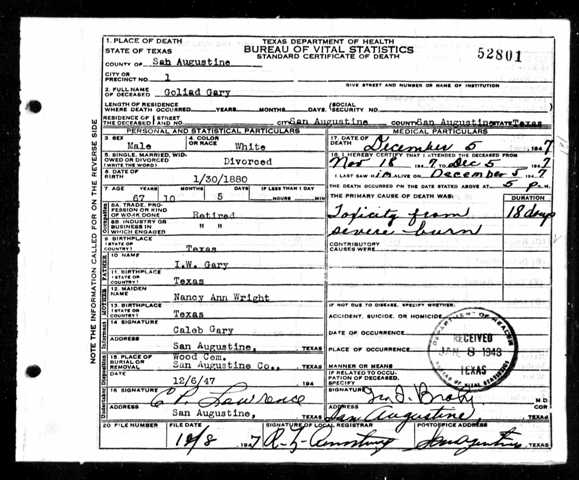 TEXAS DEPARTMENT OF HEALTH
BUREAU OF VITAL STATISTICS
STANDARD CERTIFICATE OF DEATH
52801
1. PLACE OF DEATH
STATE OF TEXAS
COUNTY OF San Augustine
CITY OR PRECINCT NO. 1
GIVE STREET AND NUMBER OR NAME OF INSTITUTION
2. FULL NAME OF DECEASED Goliad Gary
LENGTH OF RESIDENCE WHERE DEATH OCCURRED YEARS MONTHS DAYS (SOCIAL SECURITY NO.
RESIDENCE OF THE DECEASED STREET AND NO. CITY San Augustine COUNTY San Augustine STATE Texas
PERSONAL AND STATISTICAL PARTICULARS
3. SEX Male
4. COLOR OR RACE White
5. SINGLE, MARRIED, WIDOWED OR DIVORCED (WRITE THE WORD) Divorced
6. DATE OF BIRTH 1/30/1880
7. AGE YEARS MONTHS DAYS IF LESS THAN 1 DAY
67 10 5 HOURS MIN
8A. TRADE, PROFESSION OR KIND OF WORK DONE Retired
8B. INDUSTRY OR BUSINESS IN WHICH ENGAGED " "
9. BIRTHPLACE (STATE OR COUNTRY) Texas
10. NAME I.W. Gary
11. BIRTHPLACE (STATE OR COUNTRY) Texas
12. MAIDEN NAME Nancy Ann Wright
13. BIRTHPLACE (STATE OR COUNTRY) Texas
14. SIGNATURE Caleb Gary
ADDRESS San Augustine, TEXAS
15. PLACE OF BURIAL OR REMOVAL Wood Cem.
San Augustine Co., TEXAS
DATE 12/6/47 194
16. SIGNATURE Lawrence
ADDRESS San Augustine, TEXAS
MEDICAL PARTICULARS
17. DATE OF DEATH December 5 1947
18. I HEREBY CERTIFY THAT I ATTENDED THE DECEASED FROM
Nov 18 1947 TO Dec 5 1947
I LAST SAW him ALIVE ON December 5 1947
THE DEATH OCCURRED ON THE DATE STATED ABOVE AT 5 P. M.
THE PRIMARY CAUSE OF DEATH WAS: DURATION
Toxicity from 18 days
severe burn
CONTRIBUTORY CAUSES WERE:
IF NOT DUE TO DISEASE, SPECIFY WHETHER:
ACCIDENT, SUICIDE, OR HOMICIDE
DATE OF OCCURRENCE
PLACE OF OCCURRENCE
MANNER OR MEANS
IF RELATED TO OCCUPATION OF DECEASED, SPECIFY
DEPARTMENT OF HEALTH
RECEIVED
JAN 8 1948
TEXAS
BUREAU OF VITAL STATISTICS
SIGNATURE M.D.
ADDRESS San Augustine, TEXAS
20. FILE NUMBER
FILE DATE 12/8 1947
SIGNATURE OF LOCAL REGISTRAR
POSTOFFICE ADDRESS San Augustine TEXAS
NOTE THE INFORMATION CALLED FOR ON THE REVERSE SIDE
Occupation
FATHER
MOTHER
Informant
Undertaker Disposition